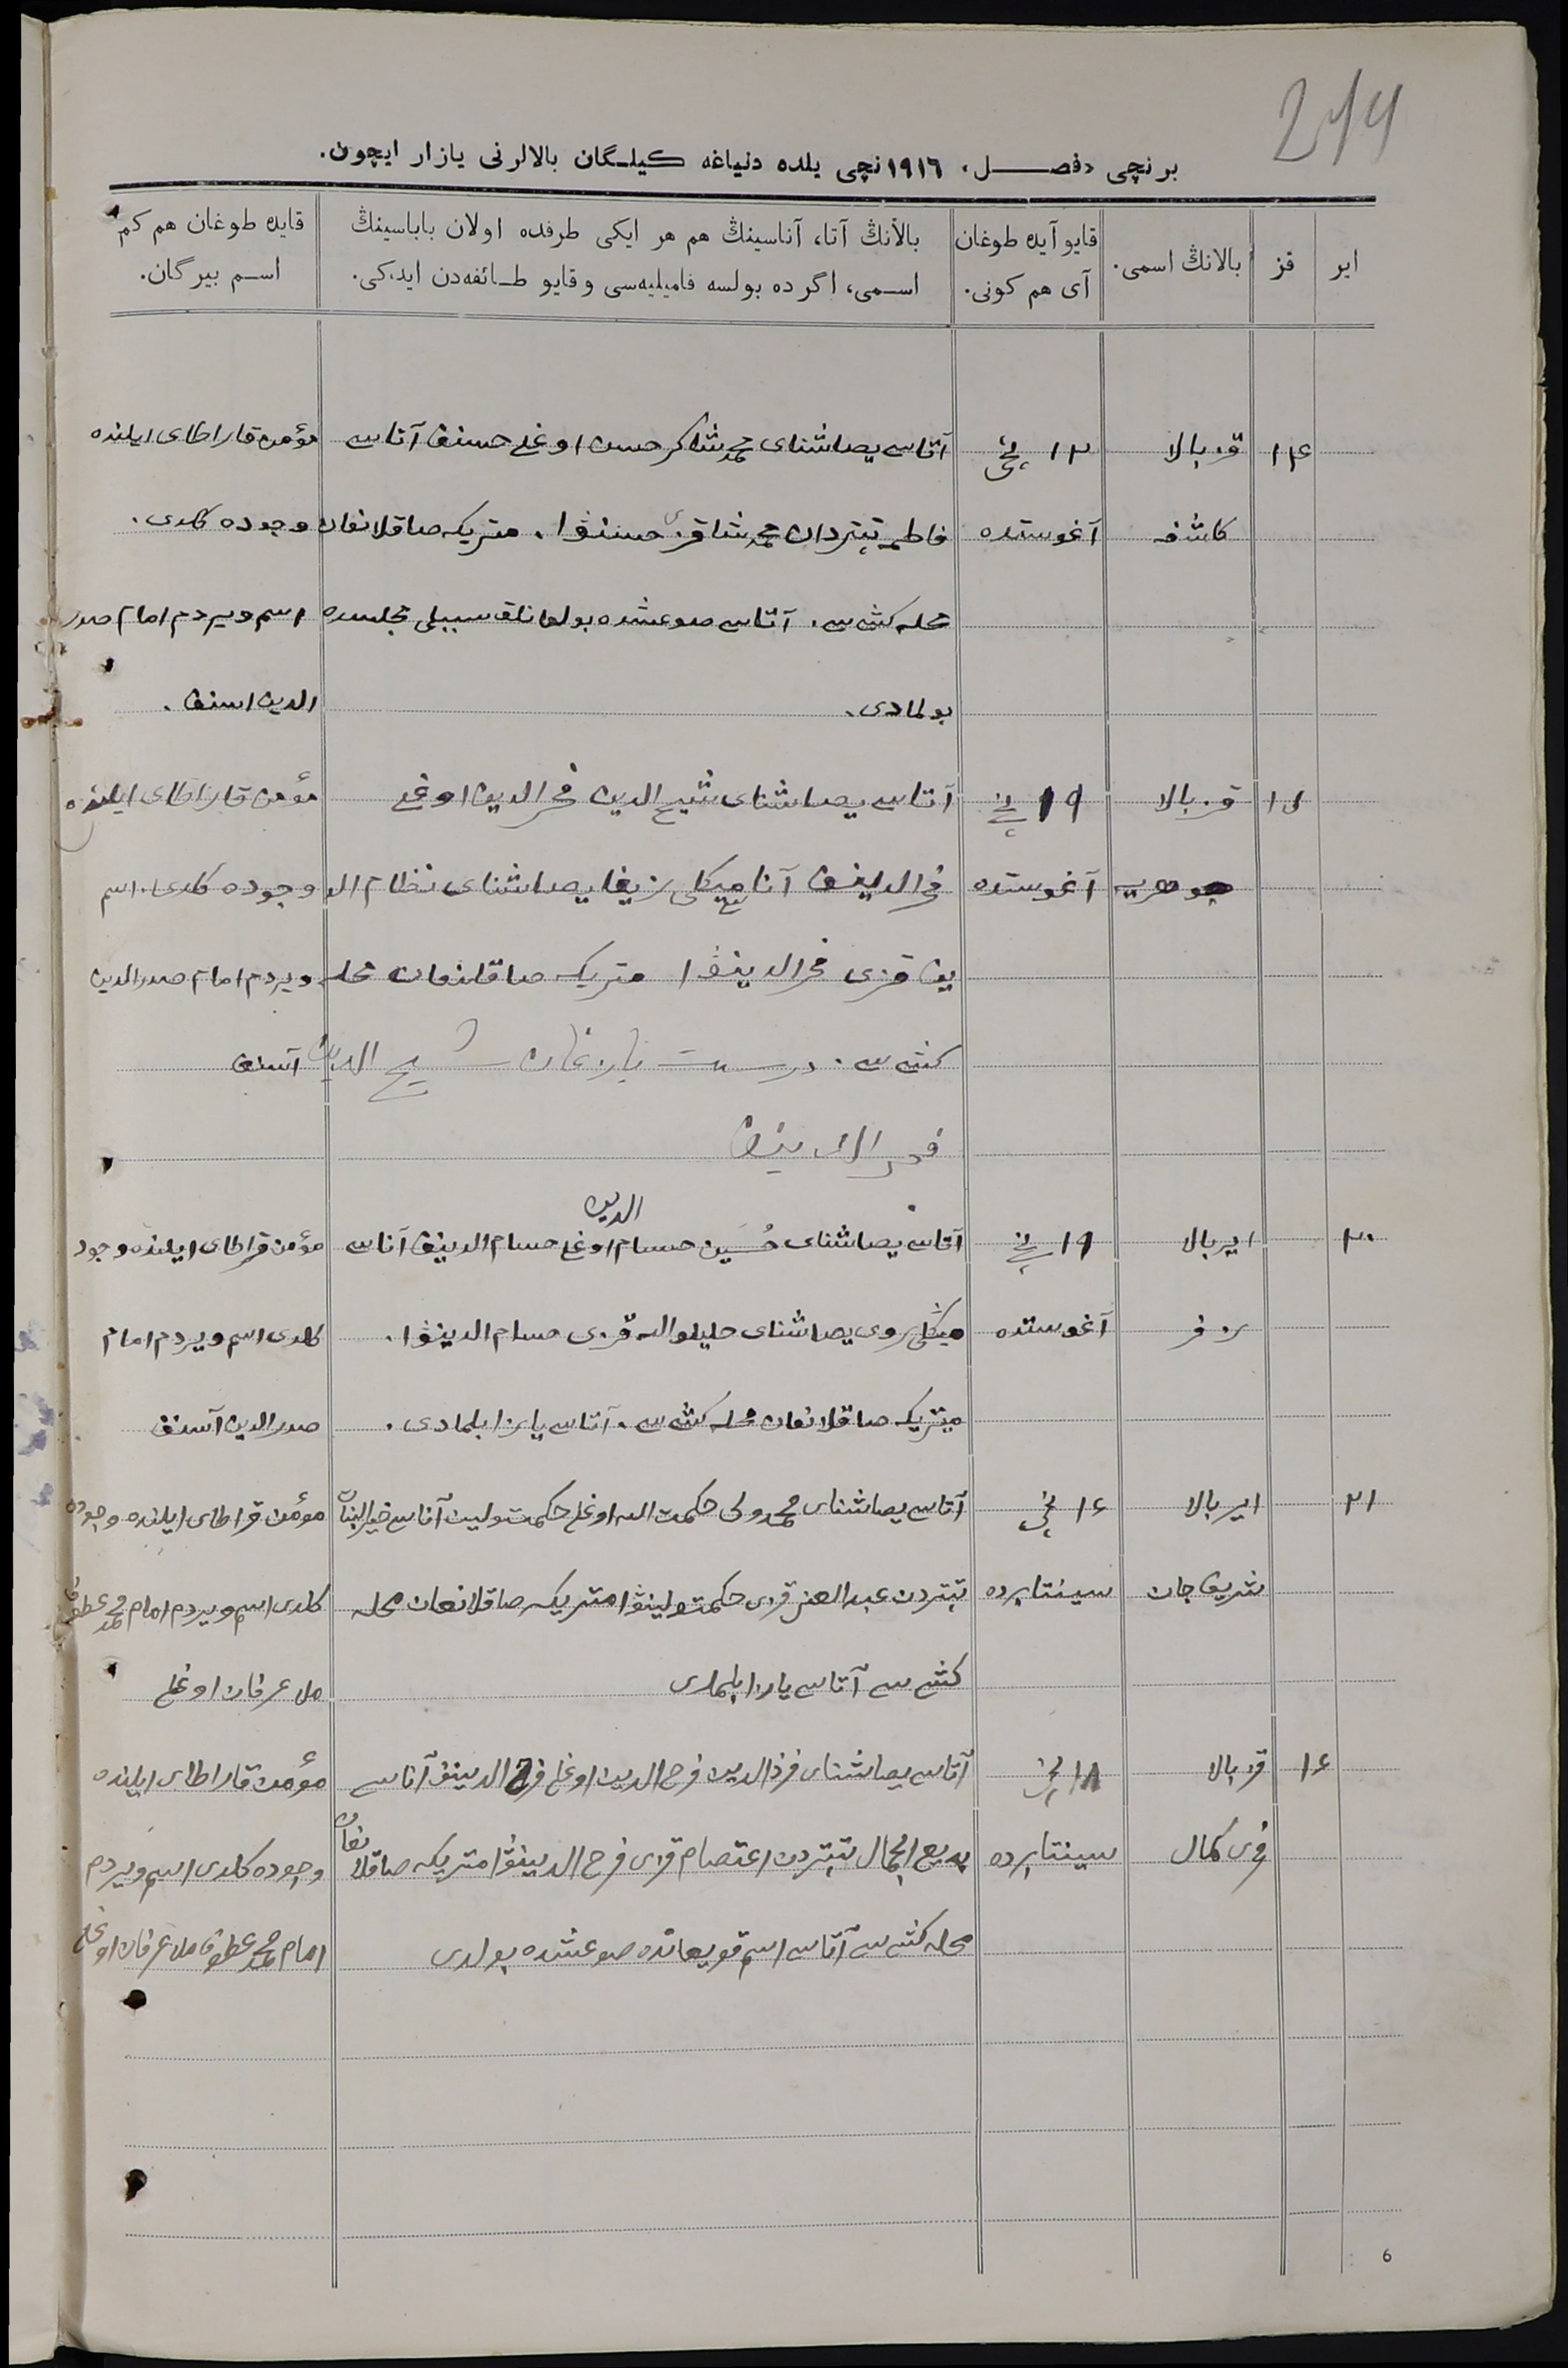 244
برنچی «فصل» ۱۹۱٦نچی یلده دنیاغه کیلگان بالالرنی یازار ایچون.
ایر
قز
بالانڭ اسمی.
قایو آیده طوغان
آی هم کونی.
بالانڭ آتا، آناسینڭ هم هر ایکی طرفده اولان باباسینڭ
اسمی، اگرده بولسه فامیلیه‌سی و قایو طائفه‌دن ایدکی.
قایده طوغان هم کم
اسم بیرگان.
۱۴ قز بالا ۱۳ نچی آتاسی یصاشنای محمدشاکر حسن اوغلی حسنف آناسی مؤمن قاراطای ایلنده
کاشفه آغوستده فاطمه تپتردان محمدشا قزی حسنوا. متریکه صاقلانغان وجوده کلدی.
محله کشی سی. آتاسی صوغشده بولغانلق سببلی مجلسده اسم ویردم امام صدر
بولمادی. الدین اسنف.
قز بالا ۱۹ نچی آتاسی یصاشنای شیخ الدین فخرالدین اوغلی مؤمن قاراطای ایلنده
جوهریه آغوستده فخرالدینف آناسی یصاشنای نظام الد وجوده کلدی. اسم
ین قزی فخرالدینوا متریکه صاقلنغان محله ویردم امام صدرالدین
کشی سی. درست یازغان شیخ الدین آسنف
فخرالدینف
۲۰ ایر بالا ۱۹ نچی آتاسی یصاشنای حُسَین حسام الدین اوغلی حسام الدینف آناسی مؤمن قراطای ایلنده وجود
آغوستده یصاشنای قزی حسام الدینوا. کلدی اسم ویردم امام
میتریکه صاقلانغان محله کشی سی. آتاسی یازا بلمادی. صدرالدین آسنف
۲۱ ایر بالا ۱۶ نچی آتاسی یصاشنای محمدولی حکمت الله اوغلی حکمت‌ولین آناسی مؤمن قراطای ایلنده وجوده
شریف جان سینتابرده تپتردن عبدالعزیز قزی حکمت‌ولینوا متریکه صاقلانغان محله کلدی اسم ویردم امام محمد عطوف
کشی سی آتاسی یازا بلمادی ملا عرفان اوغلی
۱۶ قز بالا ۱۸ نچی آتاسی یصاشنای فرح الدین اوغلی فرح الدینف آناسی مؤمن قاراطای ایلنده
کمال سینتابرده بدیع الجمال تپتردن اعتصام قزی فرح الدینوا متریکه صاقلانغان وجوده کلدی اسم ویردم
محله کشی سی آتاسی اسم قویغانده صوغشده بولدی امام محمد عطوف ملا عرفان اوغلی
6